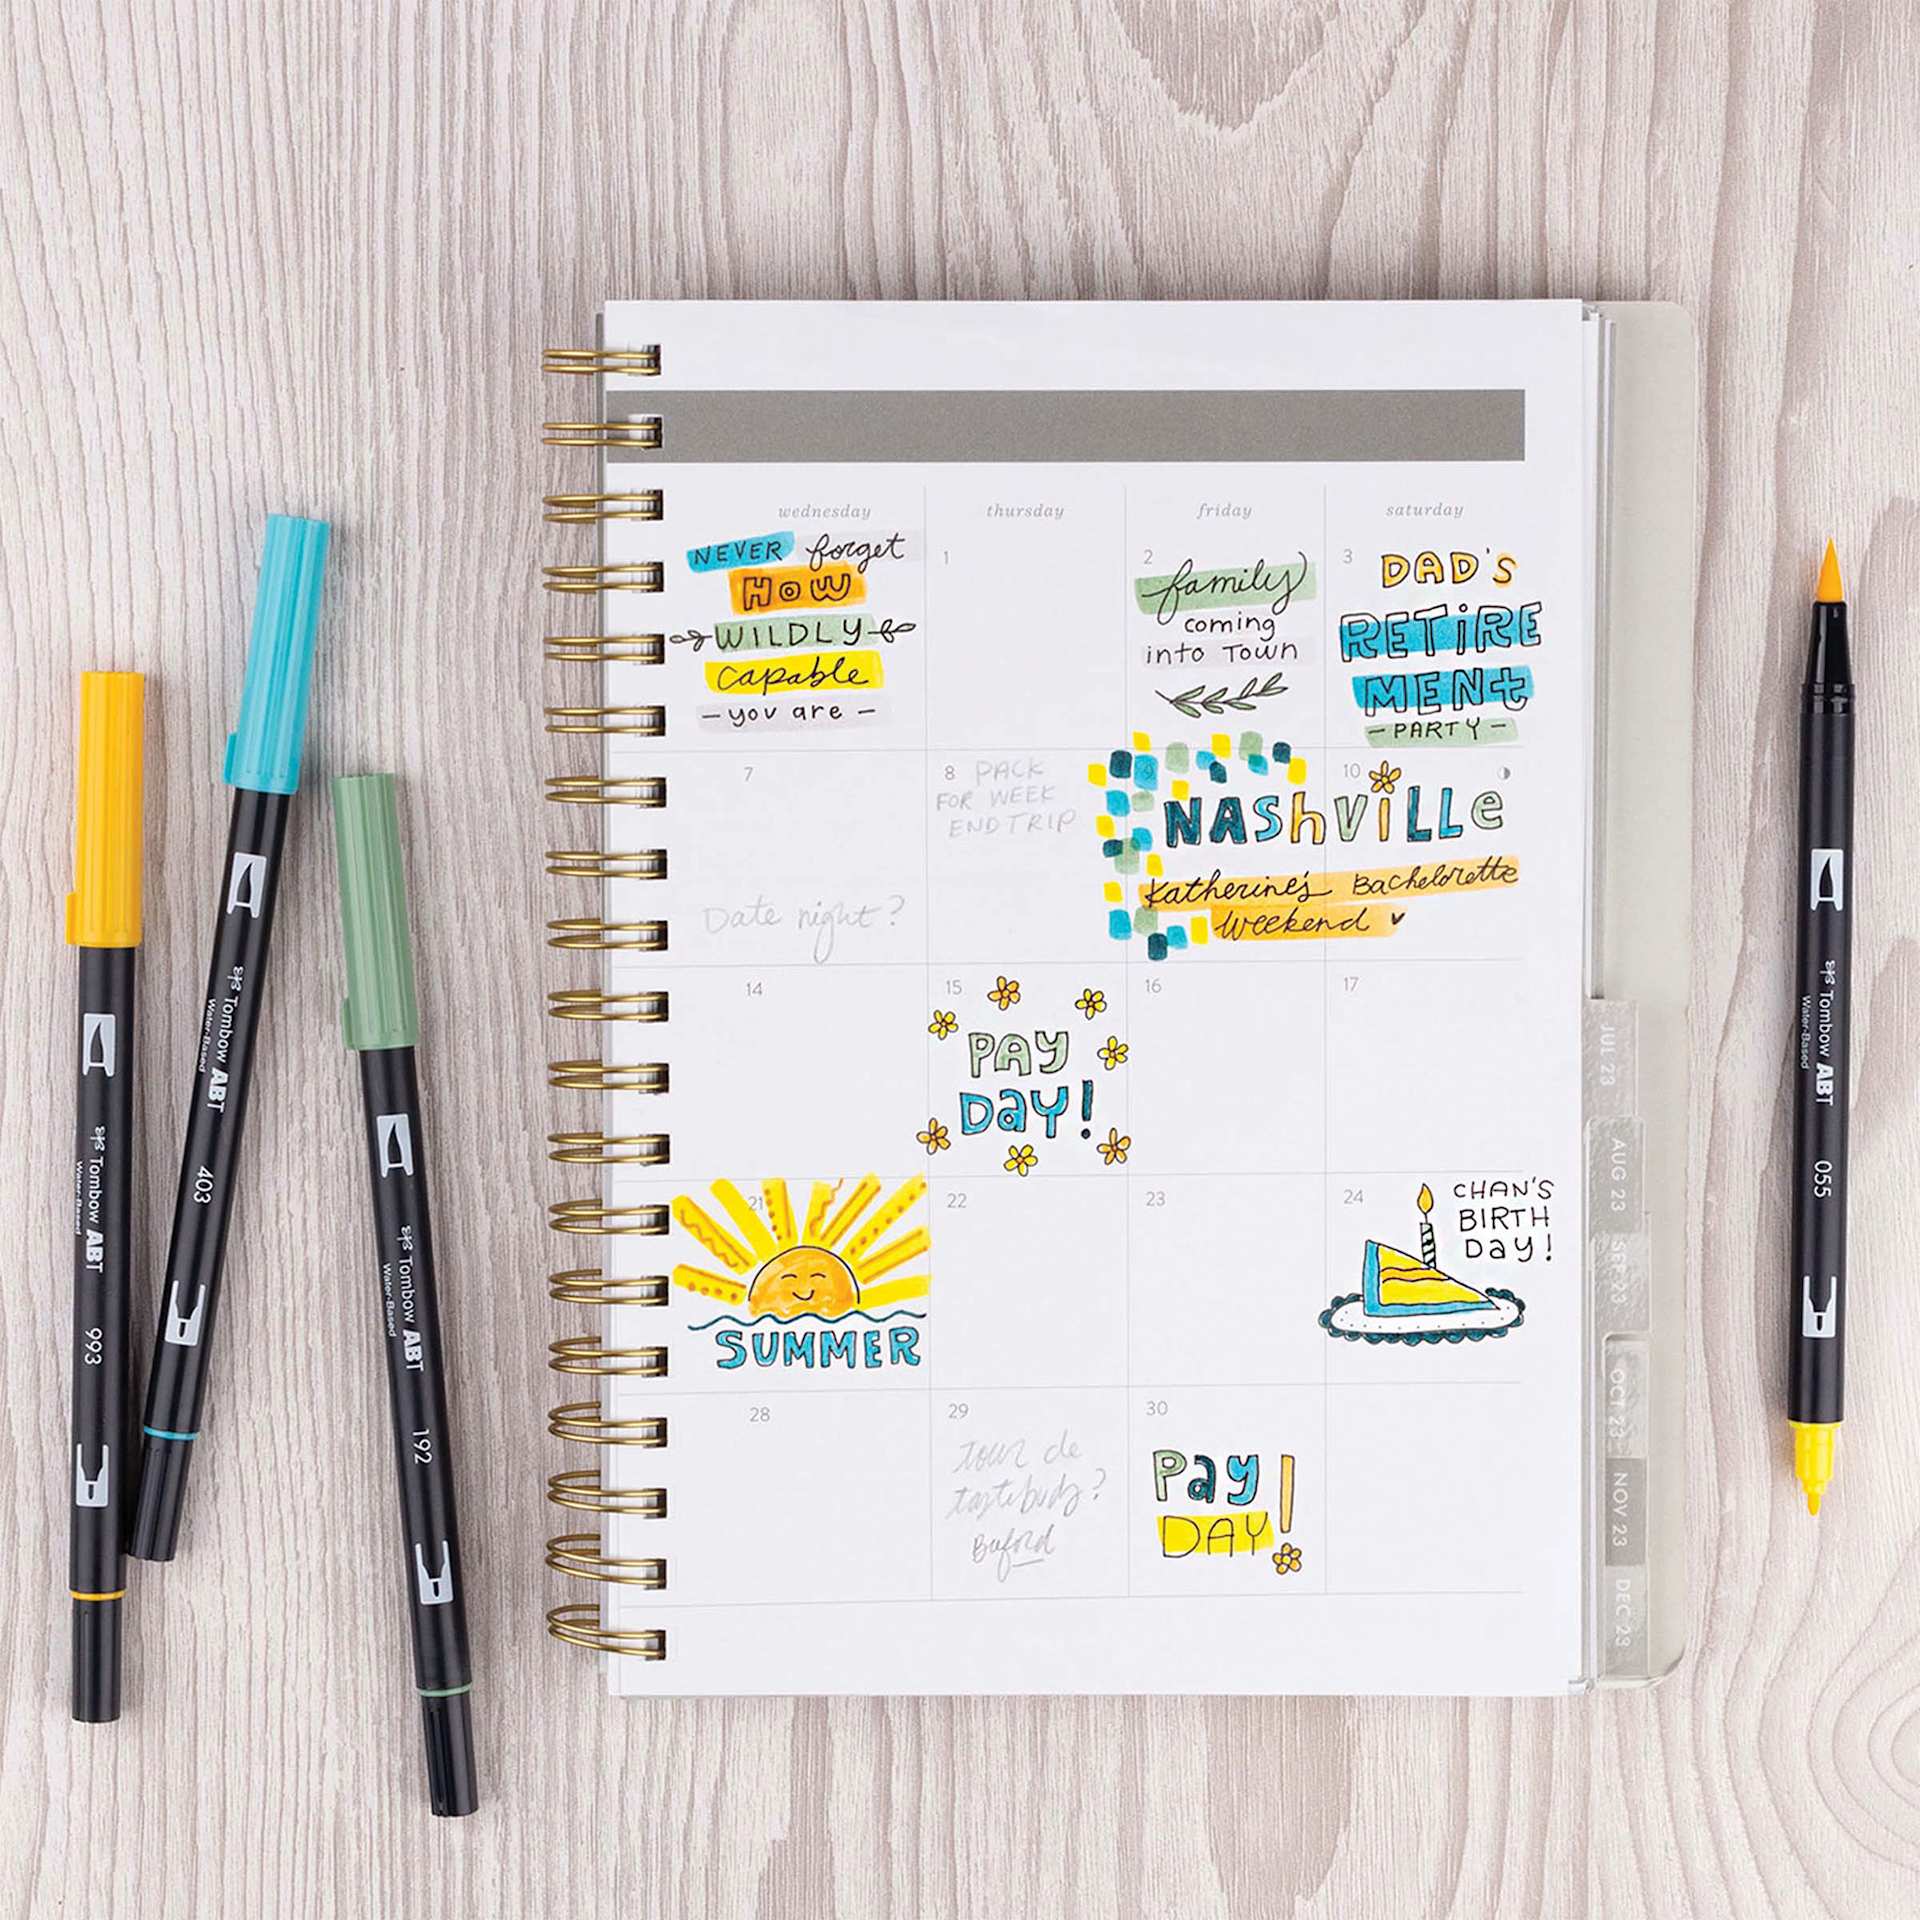 wednesday
thursday
friday
saturday
NEVER forget
HOW
WILDLY
capable
- you are -
1
2
family
coming
into Town
3
DAD'S
RETiRE
MENt
- PARTY -
7
Date night?
8 PACK
FOR WEEK
END TRIP
9
10
NASHVILLe
Katherine's Bachelorette
Weekend
14
15
PAY
Day!
16
17
21
SUMMER
22
23
24
CHAN'S
BIRTH
Day!
28
29
tour de
tastebuds?
Buford
30
Pay
DAY!
JUL 23
AUG 23
SEP 23
OCT 23
NOV 23
DEC 23
Tombow ABT
Water-Based
993
Tombow ABT
Water-Based
403
Tombow ABT
Water-Based
192
Tombow ABT
Water-Based
055